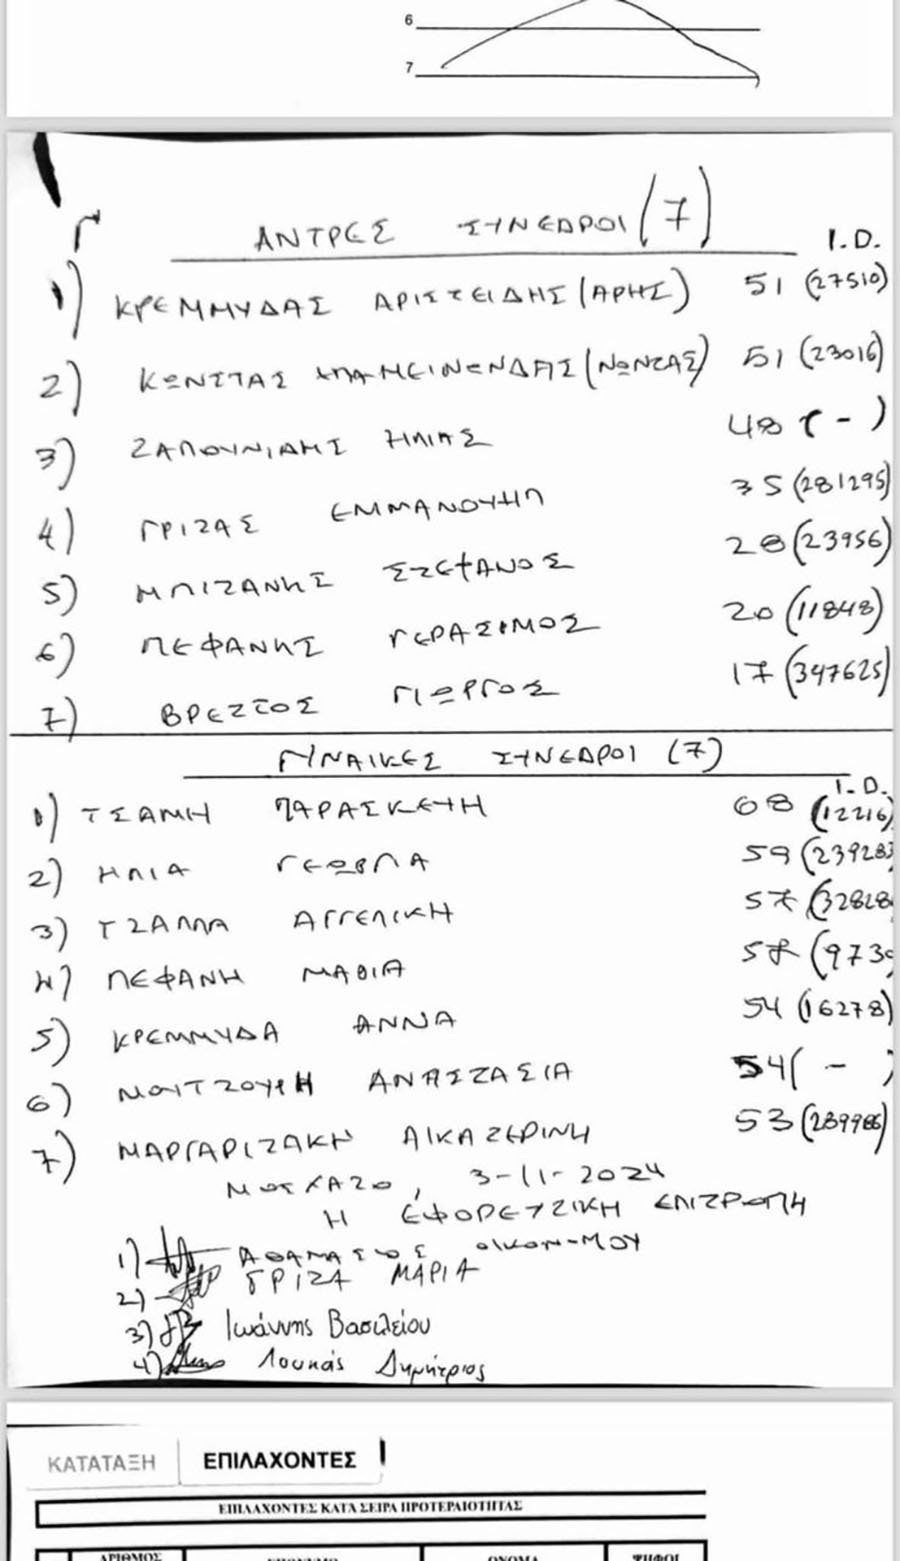 6
7
ΑΝΤΡΕΣ ΣΥΝΕΔΡΟΙ (7)
I.D.
1) ΚΡΕΜΜΥΔΑΣ ΑΡΙΣΤΕΙΔΗΣ (ΑΡΗΣ) 51 (27510)
2) ΚΩΝΣΤΑΣ (ΝΩΝΤΑΣ) 51 (23016)
3) ΖΑΠΟΥΝΙΔΗΣ ΗΛΙΑΣ 48 ( - )
4) ΓΡΙΖΑΣ ΕΜΜΑΝΟΥΗΛ 35 (281295)
5) ΜΠΙΖΑΝΗΣ ΣΤΕΦΑΝΟΣ 28 (23956)
6) ΠΕΦΑΝΗΣ ΓΕΡΑΣΙΜΟΣ 20 (11848)
7) ΒΡΕΤΤΟΣ ΓΙΩΡΓΟΣ 17 (347625)
ΓΥΝΑΙΚΕΣ ΣΥΝΕΔΡΟΙ (7)
I.D.
1) ΤΣΑΜΗ ΠΑΡΑΣΚΕΥΗ 68 (12216)
2) ΗΛΙΑ 59 (23928
3) ΤΖΑΛΛΑ ΑΓΓΕΛΙΚΗ 57 (32828
4) ΠΕΦΑΝΗ ΜΑΘΙΑ (973
5) ΚΡΕΜΜΥΔΑ ΑΝΝΑ 54 (16278)
6) ΜΟΥΤΖΟΥΡΗ ΑΝΑΣΤΑΣΙΑ 54 ( - )
7) ΜΑΡΓΑΡΙΤΑΚΗ ΑΙΚΑΤΕΡΙΝΗ 53
ΜΟΣΧΑΤΟ, 3-11-2024
Η ΕΦΟΡΕΥΤΙΚΗ ΕΠΙΤΡΟΠΗ
1) ΑΘΑΝΑΣΙΟΣ ΟΙΚΟΝ-ΜΟΥ
2) ΓΡΙΖΑ ΜΑΡΙΑ
3) Ιωάννης Βασιλείου
4) Λουκάς Δημήτριος
ΚΑΤΑΤΑΞΗ ΕΠΙΛΑΧΟΝΤΕΣ
ΕΠΙΛΑΧΟΝΤΕΣ ΚΑΤΑ ΣΕΙΡΑ ΠΡΟΤΕΡΑΙΟΤΗΤΑΣ
ΑΡΙΘΜΟΣ ΕΠΩΝΥΜΟ ΟΝΟΜΑ ΨΗΦΟΙ